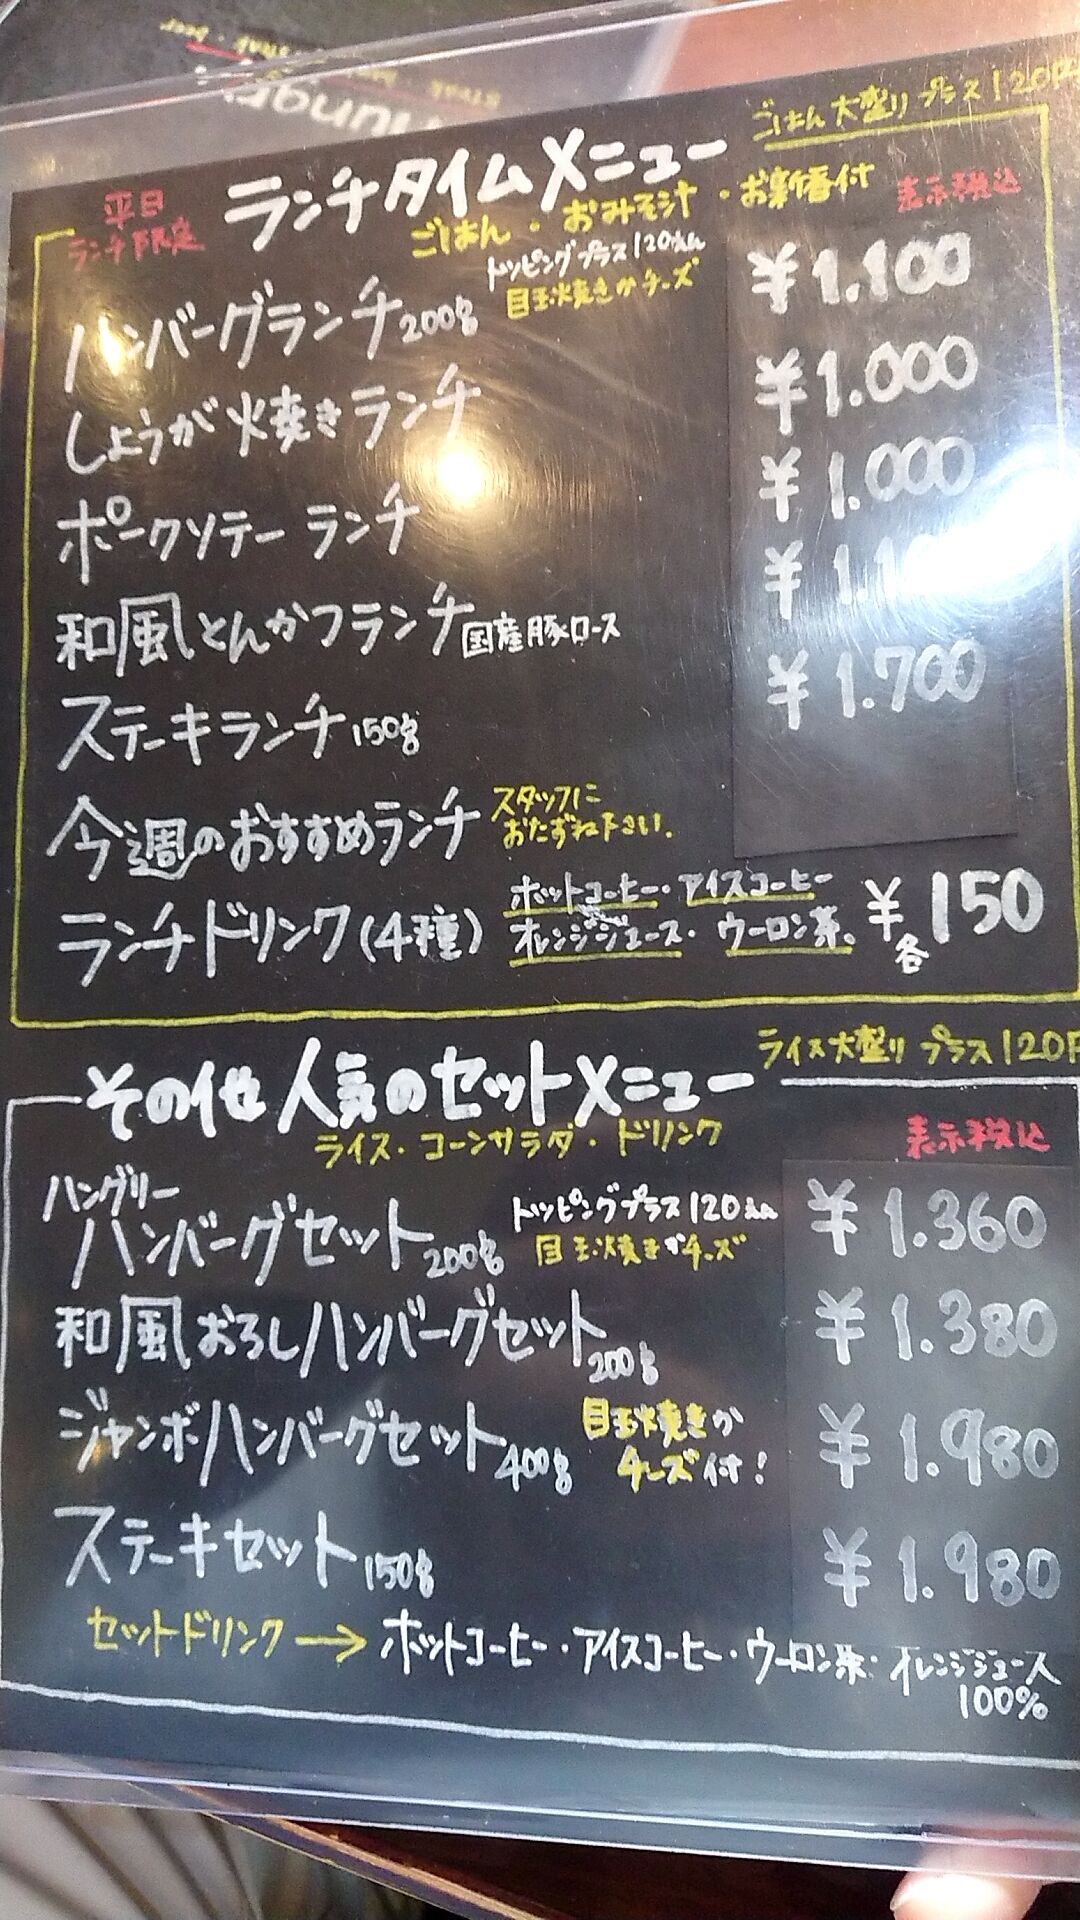 ごはん大盛り プラス120円
平日
ランチ限定
ランチタイムメニュー
ごはん・おみそ汁・お新香付
表示税込
ハンバーグランチ200g
トッピングプラス120円
目玉焼きかチーズ
¥1.100
しょうが焼きランチ
¥1.000
ポークソテーランチ
¥1.000
和風とんかつランチ 国産豚ロース
ステーキランチ150g
¥1.700
今週のおすすめランチ
スタッフに
おたずね下さい.
ランチドリンク(4種)
ホットコーヒー・アイスコーヒー
オレンジジュース・ウーロン茶。
¥各150
ライス大盛り プラス120円
その他人気のセットメニュー
ライス・コーンサラダ・ドリンク
表示税込
ハングリー
ハンバーグセット200g
トッピングプラス120円
目玉焼きかチーズ
¥1.360
和風おろしハンバーグセット200g
¥1.380
ジャンボハンバーグセット400g
目玉焼きか
チーズ付!
¥1.980
ステーキセット150g
¥1.980
セットドリンク→ホットコーヒー・アイスコーヒー・ウーロン茶・オレンジジュース
100%